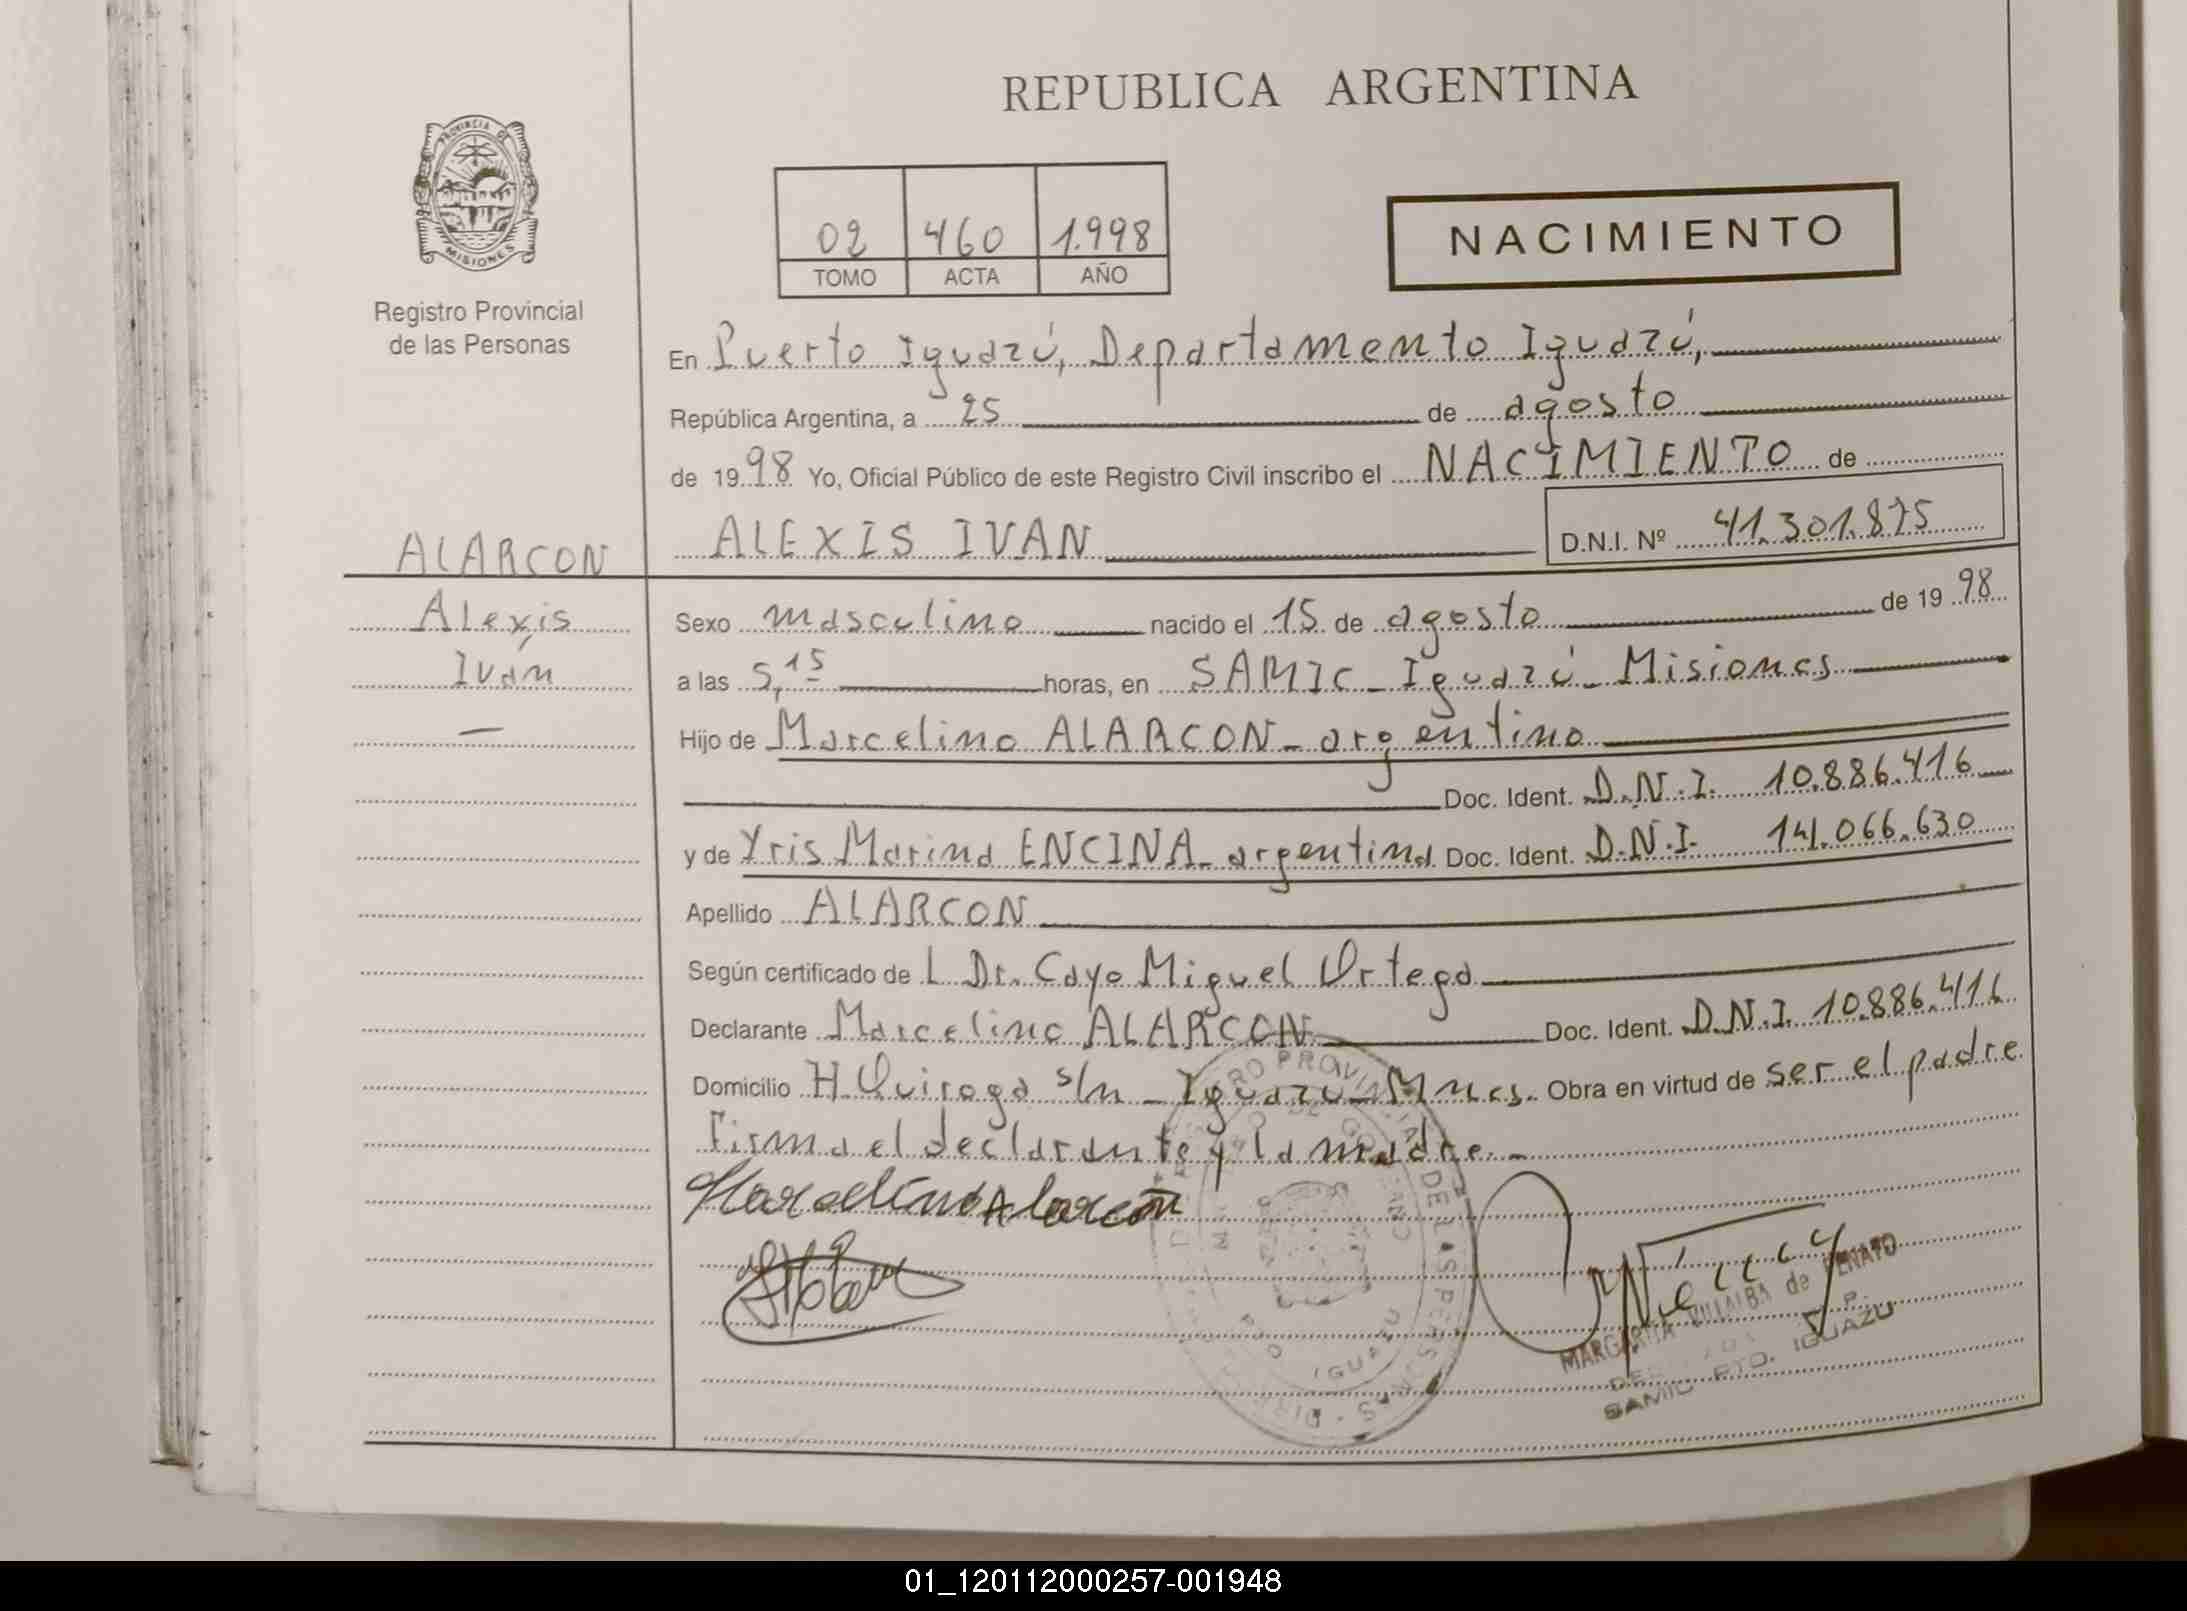 REPUBLICA ARGENTINA
PROVINCIA DE
MISIONES
Registro Provincial
de las Personas
02 460 1.998
TOMO ACTA AÑO
NACIMIENTO
En Puerto Iguazú, Departamento Iguazú,
República Argentina, a 25 de agosto
de 1998 Yo, Oficial Público de este Registro Civil inscribo el NACIMIENTO de
ALARCON ALEXIS IVAN D.N.I. Nº 41.301.875
Alexis Sexo masculino nacido el 15 de agosto de 1998
Ivan a las 5,15 horas, en SAMIC - Iguazú - Misiones
— Hijo de Marcelino ALARCON - argentino
Doc. Ident. D.N.I. 10.886.416
y de Yris Marina ENCINA - argentina Doc. Ident. D.N.I. 14.066.630
Apellido ALARCON
Según certificado de L Dr. Cayo Miguel Ortega
Declarante Marcelino ALARCON Doc. Ident. D.N.I. 10.886.416
Domicilio H. Quiroga s/n - Iguazu - Mnes. Obra en virtud de ser el padre
Firma el declarante y la madre. -
Marcelino Alarcon
MARGARITA VILLALBA de
SAMIC PTO. IGUAZU
01_120112000257-001948